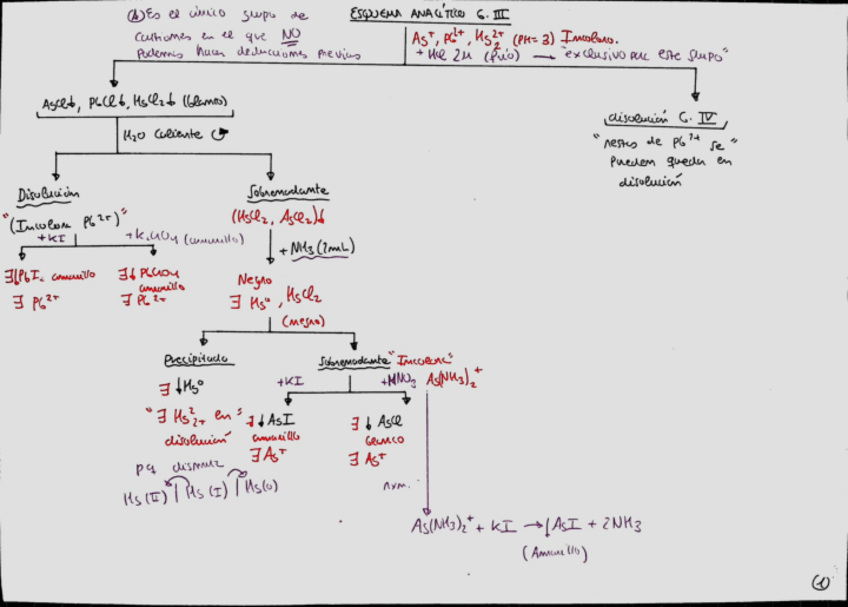 (*) Es el único grupo de
cationes en el que NO
podemos hacer deducciones previas
ESQUEMA ANALÍTICO G. III
Ag+, Pb2+, Hg2 2+ (PH=3) Incoloro.
+ HCl 2M (frío) → "exclusivo de este grupo"
AgCl↓, PbCl↓, Hg2Cl2↓ (blanco)
H2O caliente
disolución G. IV
"restos de Pb2+ se"
pueden quedar en
disolución
Disolución
"(Incolora Pb2+)"
+KI
+K2CrO4 (amarillo)
∃↓PbI2 amarillo
∃ Pb2+
∃↓ PbCrO4
amarillo
∃ Pb2+
Sobrenadante
(HgCl2, AgCl2)↓
+ NH3 (2mL)
Negro
∃ Hg0, HgCl2
(negro)
Precipitado
∃ ↓Hg0
"∃ Hg2 2+ en"
disolución
pq dismuta
Hg(II) | Hg(I) | Hg(0)
Sobrenadante "Incolora"
+KI
+HNO3
Ag(NH3)2+
∃ ↓ AgI
amarillo
∃ Ag+
∃ ↓ AgCl
blanco
∃ Ag+
rxn.
Ag(NH3)2+ + KI → ↓AgI + 2NH3
(Amarillo)
(1)